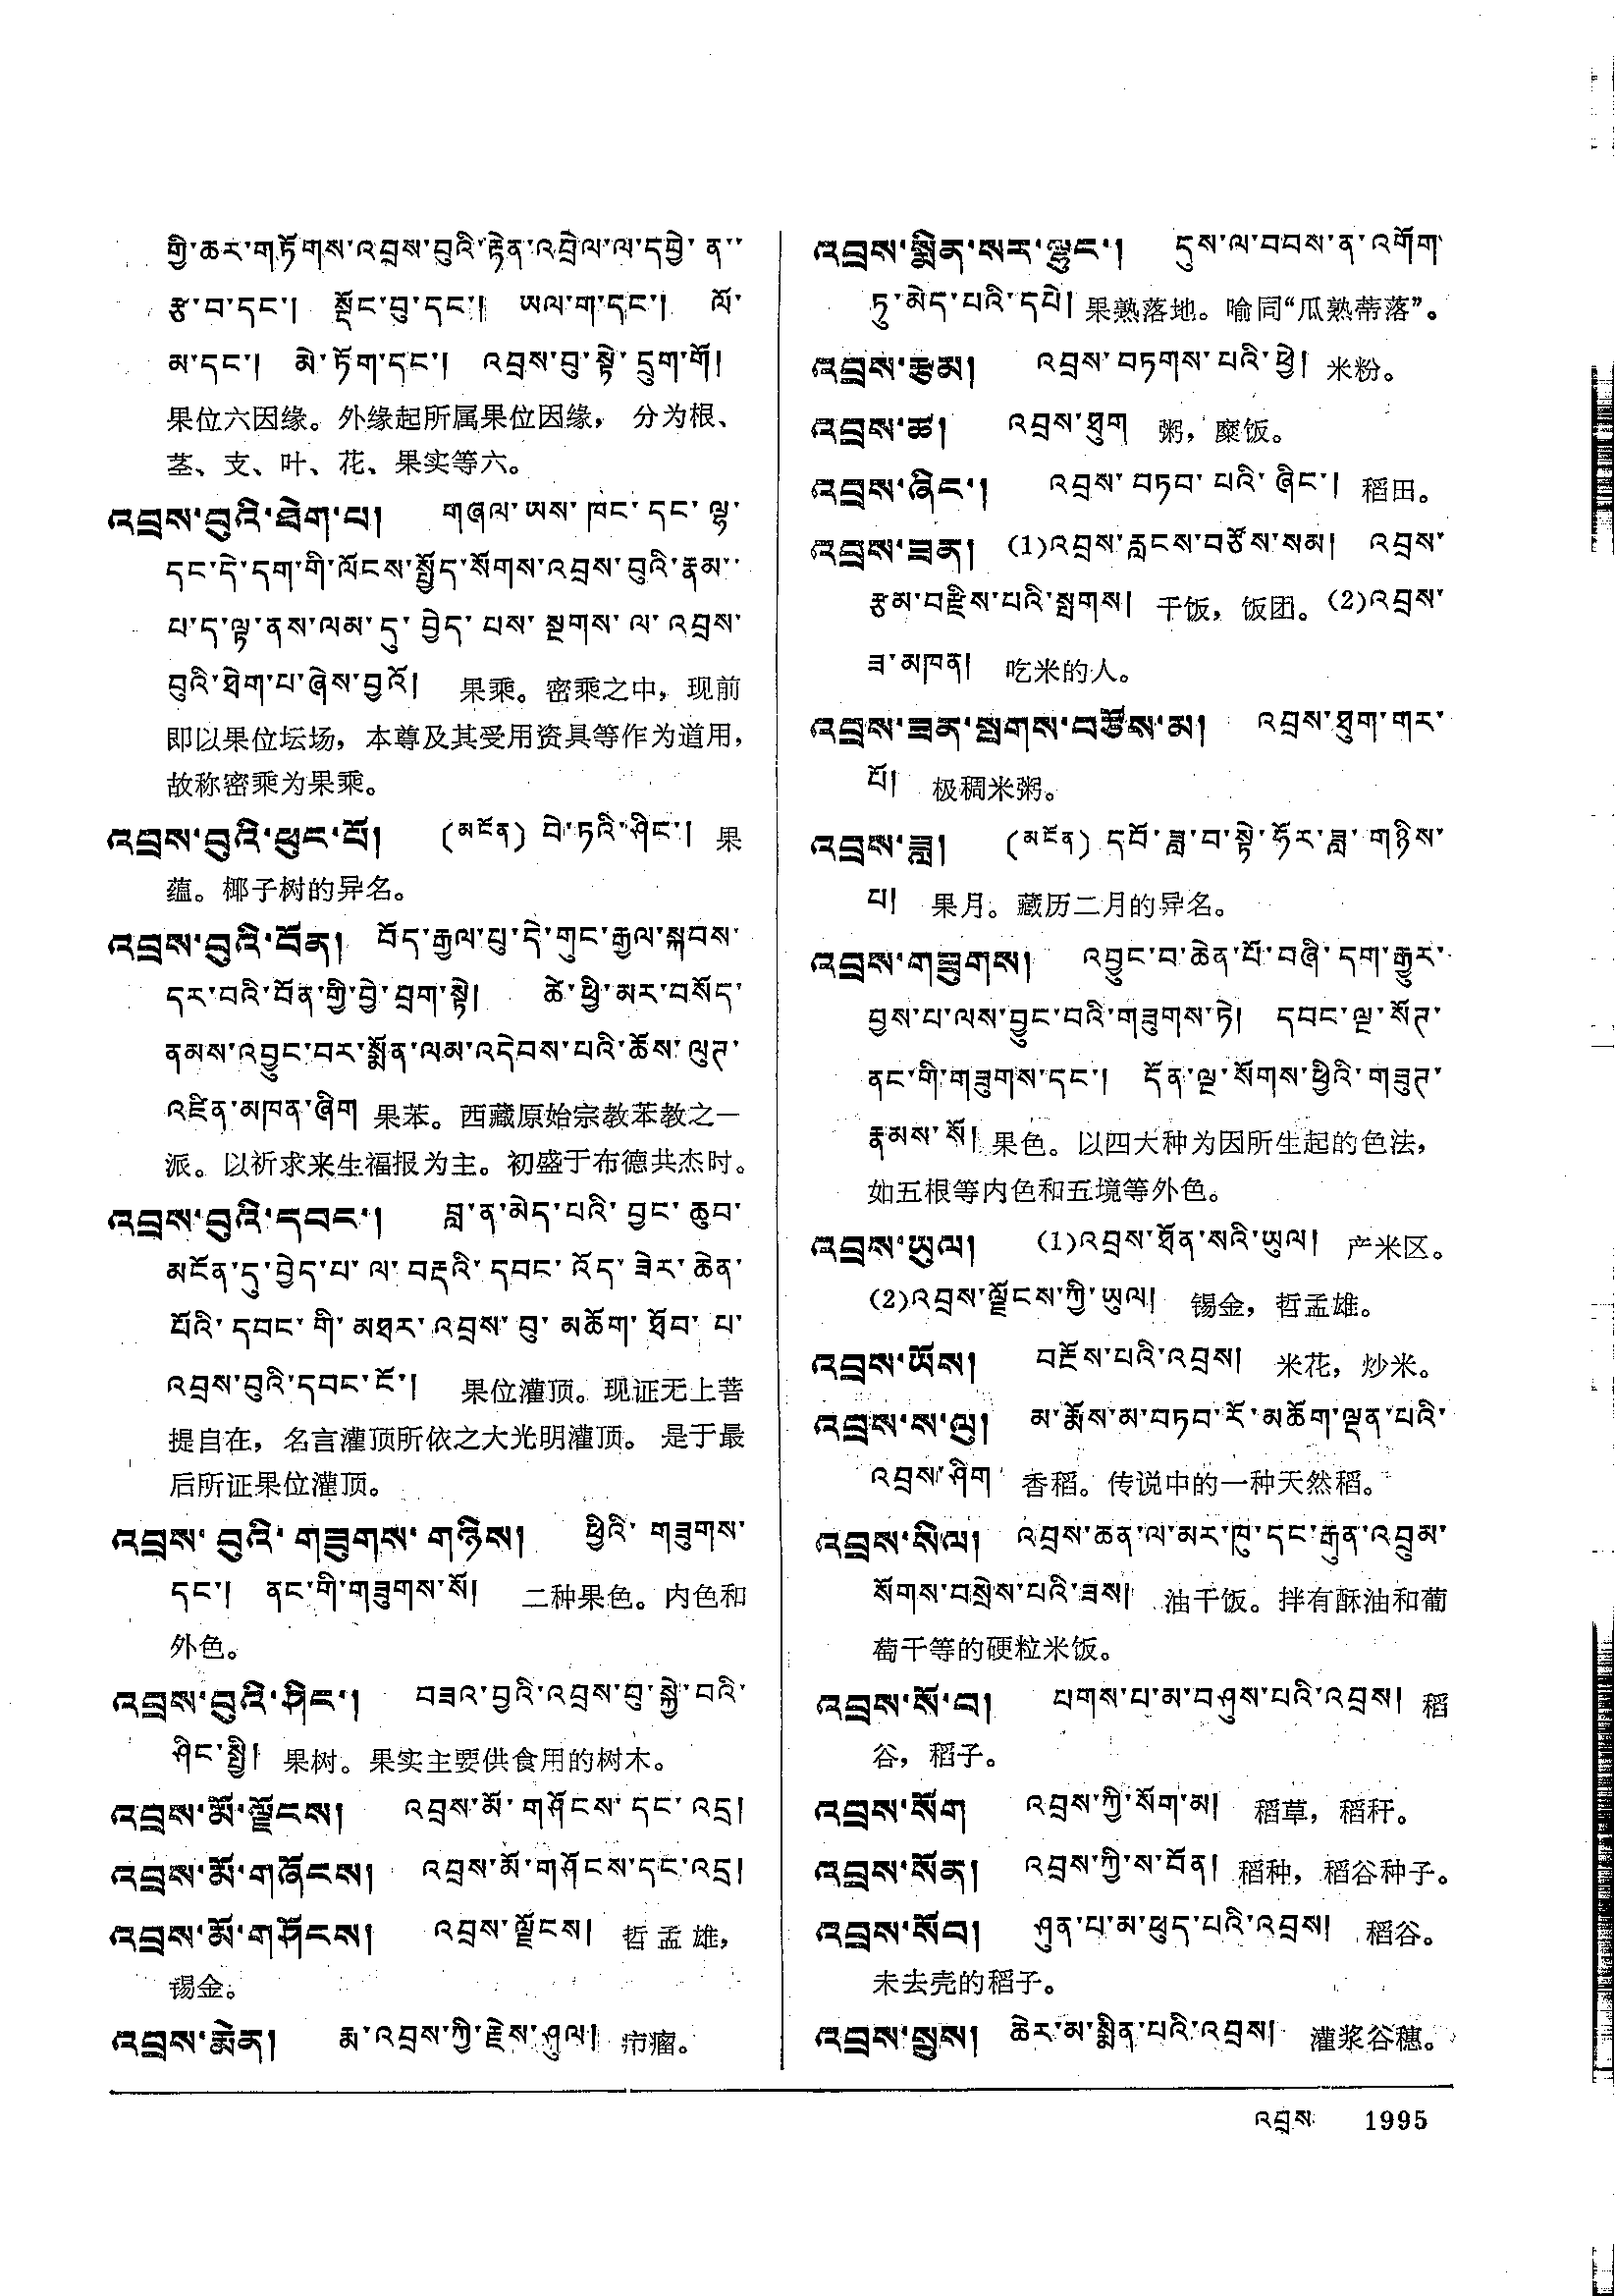 གྱི་ཆར་གཏོགས་འབྲས་བུའི་རྟེན་འབྲེལ་ལ་དབྱེ་ན་
རྩ་བ་དང་། སྡོང་བུ་དང་། ཡལ་ག་དང་། ལོ་
མ་དང་། མེ་ཏོག་དང་། འབྲས་བུ་སྟེ་དྲུག་གོ།
果位六因缘。外缘起所属果位因缘，分为根、
茎、支、叶、花、果实等六。
འབྲས་བུའི་ཐེག་པ། གཞལ་ཡས་ཁང་དང་ལྷ་
དང་དེ་དག་གི་ལོངས་སྤྱོད་སོགས་འབྲས་བུའི་རྣམ་
པ་ད་ལྟ་ནས་ལམ་དུ་བྱེད་པས་སྔགས་ལ་འབྲས་
བུའི་ཐེག་པ་ཞེས་བྱའོ། 果乘。密乘之中，现前
即以果位坛场，本尊及其受用资具等作为道用，
故称密乘为果乘。
འབྲས་བུའི་ཕུང་པོ། (མངོན) བེ་ཏའི་ཤིང་། 果
蕴。椰子树的异名。
འབྲས་བུའི་བོན། བོད་རྒྱལ་པུ་དེ་གུང་རྒྱལ་སྐབས་
དར་བའི་བོན་གྱི་བྱེ་བྲག་སྟེ། ཚེ་ཕྱི་མར་བསོད་
ནམས་འབྱུང་བར་སྨོན་ལམ་འདེབས་པའི་ཆོས་ལུཊ་
འཛིན་མཁན་ཞིག 果苯。西藏原始宗教苯教之一
派。以祈求来生福报为主。初盛于布德共杰时。
འབྲས་བུའི་དབང་། བླ་ན་མེད་པའི་བྱང་ཆུབ་
མངོན་དུ་བྱེད་པ་ལ་བརྡའི་དབང་འོད་ཟེར་ཆེན་
པོའི་དབང་གི་མཐར་འབྲས་བུ་མཆོག་ཐོབ་པ་
འབྲས་བུའི་དབང་ངོ་། 果位灌顶。现证无上菩
提自在，名言灌顶所依之大光明灌顶。是于最
后所证果位灌顶。
འབྲས་བུའི་གཟུགས་གཉིས། ཕྱིའི་གཟུགས་
དང་། ནང་གི་གཟུགས་སོ། 二种果色。内色和
外色。
འབྲས་བུའི་ཤིང་། བཟའ་བྱའི་འབྲས་བུ་སྐྱེ་བའི་
ཤིང་སྤྱི། 果树。果实主要供食用的树木。
འབྲས་མོ་ལྗོངས། འབྲས་མོ་གཤོངས་དང་འདྲ།
འབྲས་མོ་གཞོངས། འབྲས་མོ་གཤོངས་དང་འདྲ།
འབྲས་མོ་གཤོངས། འབྲས་ལྗོངས། 哲孟雄，
锡金。
འབྲས་རྨེན། རྨ་འབྲས་ཀྱི་རྗེས་ཤུལ། 疖瘤。
འབྲས་སྨིན་སར་ལྷུང་། དུས་ལ་བབས་ན་འགོག་
ཏུ་མེད་པའི་དཔེ། 果熟落地。喻同“瓜熟蒂落”。
འབྲས་རྩམ། འབྲས་བཏགས་པའི་ཕྱེ། 米粉。
འབྲས་ཚ། འབྲས་ཐུག 粥，糜饭。
འབྲས་ཞིང་། འབྲས་བཏབ་པའི་ཞིང་། 稻田。
འབྲས་ཟན། (1)འབྲས་རླངས་བཙོས་སམ། འབྲས་
རྩམ་བརྫིས་པའི་སྤགས། 干饭，饭团。(2)འབྲས་
ཟ་མཁན། 吃米的人。
འབྲས་ཟན་སྤགས་བཙོས་མ། འབྲས་ཐུག་གར་
པོ། 极稠米粥。
འབྲས་ཟླ། (མངོན) དབོ་ཟླ་བ་སྟེ་ཧོར་ཟླ་གཉིས་
པ། 果月。藏历二月的异名。
འབྲས་གཟུགས། འབྱུང་བ་ཆེན་པོ་བཞི་དག་རྒྱུར་
བྱས་པ་ལས་བྱུང་བའི་གཟུགས་ཏེ། དབང་ལྔ་སོཊ་
ནང་གི་གཟུགས་དང་། དོན་ལྔ་སོགས་ཕྱིའི་གཟུཊ་
རྣམས་སོ། 果色。以四大种为因所生起的色法，
如五根等内色和五境等外色。
འབྲས་ཡུལ། (1)འབྲས་ཐོན་སའི་ཡུལ། 产米区。
(2)འབྲས་ལྗོངས་ཀྱི་ཡུལ། 锡金，哲孟雄。
འབྲས་ཡོས། བརྔོས་པའི་འབྲས། 米花，炒米。
འབྲས་ས་ལུ། མ་རྨོས་མ་བཏབ་རོ་མཆོག་ལྡན་པའི་
འབྲས་ཤིག 香稻。传说中的一种天然稻。
འབྲས་སིལ། འབྲས་ཆན་ལ་མར་ཁུ་དང་རྒུན་འབྲུམ་
སོགས་བསྲེས་པའི་ཟས། 油干饭。拌有酥油和葡
萄干等的硬粒米饭。
འབྲས་སོ་བ། པགས་པ་མ་བཤུས་པའི་འབྲས། 稻
谷，稻子。
འབྲས་སོག འབྲས་ཀྱི་སོག་མ། 稻草，稻秆。
འབྲས་སོན། འབྲས་ཀྱི་ས་བོན། 稻种，稻谷种子。
འབྲས་སོབ། ཤུན་པ་མ་ཕུད་པའི་འབྲས། 稻谷。
未去壳的稻子。
འབྲས་སྲུས། ཆེར་མ་སྨིན་པའི་འབྲས། 灌浆谷穗。
འབྲས 1995